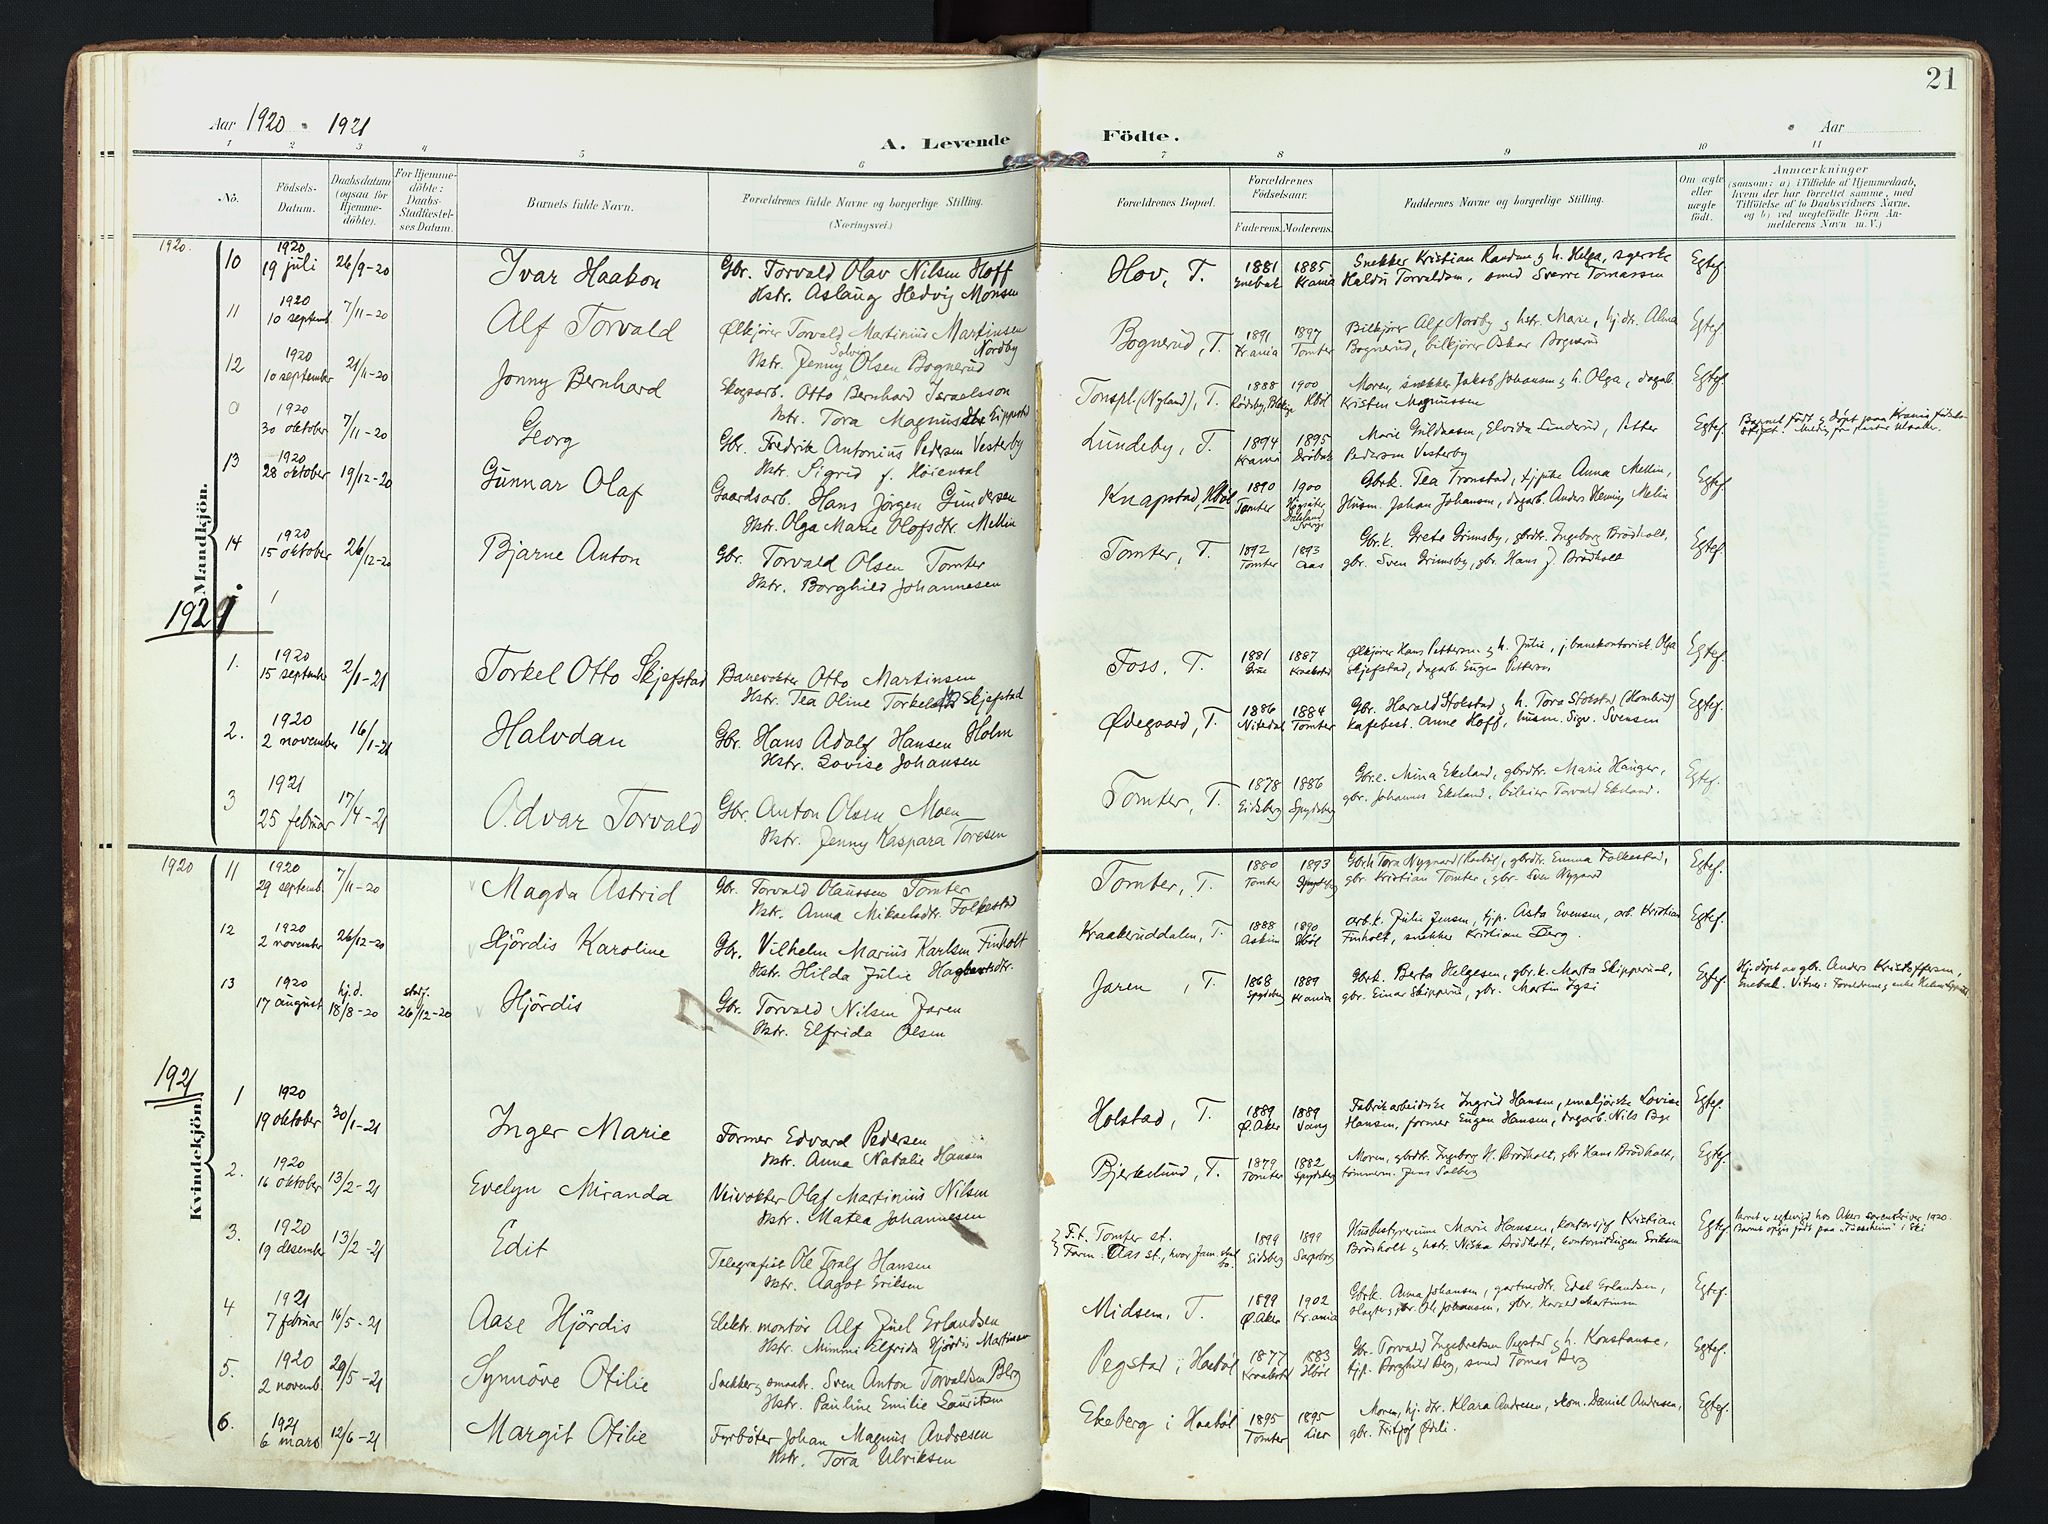 21
Aar 1920 - 1921
A. Levende Födte.
Aar
1 2 3 4 5 6 7 8 9 10 11
No.
Födsels-Datum.
Daabsdatum (ogsaa for Hjemmedöbte).
For Hjemmedöbte: Daabs-Stadfæstelses Datum.
Barnets fulde Navn.
Forældrenes fulde Navne og borgerlige Stilling. (Næringsvei.)
Forældrenes Bopæl.
Forældrenes Födselsaar.
Faderens. Moderens.
Faddernes Navne og borgerlige Stilling.
Om ægte eller uægte födt.
Anmærkninger
(saasom: a) i Tilfælde af Hjemmedaab, hvem der har forrettet samme, med Tilföielse af to Daabsvidners Navne, og b) ved uægtefödte Börn Anmelderens Navn m. V.)
Mandkjön.
1920.
10 1920 19 juli 26/9-20 Ivar Haakon Gbr. Torvald Olav Nilsen Hoff Hov, T. 1881 1885 Snekker Kristian Randem g h. Helga, syerske Egtef.
Hstr. Aslaug Hedvig Monsen Enebak Krania Torvaldsen, smed Sverre Tomassen
11 1920 10 septemb. 7/11-20 Alf Torvald Ølkjører Torvald Martinius Martinsen Nordby Bognerud, T. 1891 1897 Bilkjører Alf Nordby g hstr. Marie, hj.dtr. Alma Egtef.
Hstr. Jenny Solvei Olsen Bognerud Krania Tomter Bognerud, bilkjører Oskar Bognerud
12 1920 10 september 21/11-20 Jonny Bernhard Skogsarb. Otto Bernhard Israelsson Tonspl. (Nyland), T. 1888 1900 Moren, snekker Jakob Johansen g h. Olga, dagarb. Egtef.
Hstr. Tora Magnusdtr. Kristen Magnussen
0 1920 30 oktober 7/11-20 Georg Gbr. Fredrik Antonius Pedersen Vesterby Lundeby, T. 1894 1895 Marie Gildaasen, Elvida Linderud, Petter Egtef. Barnet født g døpt paa Krania fødsels-
Hstr. Sigrid f. Høiendal Krania Drøbak Pedersen Vesterby
13 1920 28 oktober 19/12-20 Gunnar Olaf Gaardsarb. Hans Jørgen Gundersen Knapstad, Hbøl 1890 1900 Gbrk. Tea Tronstad, tjpike Anna Mellin, Egtef.
Hstr. Olga Marie Olofsdtr. Mellin Tomter Husm. Johan Johansen, dagarb. Anders Henning Melin
14 1920 15 oktober 26/12-20 Bjarne Anton Gbr. Torvald Olsen Tomter Tomter, T. 1892 1893 Gbr.k. Grete Grimsby, gbrdtr. Ingeborg Brødholt, Egtef.
Hstr. Borghild Johannesen Tomter Aas gbr. Sven Grimsby, gbr. Hans J. Brødholt
1921
1. 1920 15 september 2/1-21 Torkel Otto Skjefstad Banevokter Otto Martinsen Foss, T. 1881 1887 Ølkjører Hans Pettersen g h. Julie, jbanekontorist. Olga Egtef.
Hstr. Tea Oline Torkelsen Skjefstad Skjefstad, dagarb. Eugen Pettersen
2. 1920 2 november 16/1-21 Halvdan Gbr. Hans Adolf Hansen Holm Ødegaard, T. 1886 1884 Gbr. Harald Stokstad g h. Tora Stokstad Egtef.
Hstr. Lovise Johansen Nitedal Tomter kafebest. Anne Hoff, husm. Sigv. Svensen
3 1921 25 februar 17/4-21 Odvar Torvald Gbr. Anton Olsen Moen Tomter, T. 1878 1886 Gbr.e. Mina Ekeland, gbrdtr. Marie Hauger, Egtef.
Hstr. Jenny Kaspara Toresen Eidsberg Spydeberg gbr. Johannes Ekeland, bileier Torvald Ekeland.
Kvindekjön.
1920
11 1920 29 septemb. 7/11-20 Magda Astrid Gbr. Torvald Olaussen Tomter Tomter, T. 1880 1893 Gbrh Tora Nygaard (Haabøl), gbrdtr. Emma Folkestad, Egtef.
Hstr. Anna Mikaelsdtr. Folkestad Tomter Spydeberg gbr Kristian Tomter, gbr. Sven Nygaard
12 1920 2 november 26/12-20 Hjördis Karoline Gbr. Vilhelm Marius Karlsen Finholt Kraakeruddalen, T. 1888 1890 arb.k. Julie Jensen, tjp. Asta Evensen, arb. Kristian Egtef.
Hstr. Hilda Julie Hagbartsdtr. Askim Hbøl Finholt, snekker Kristian Berg.
13 1920 17 august hj.d. 18/8-20 stadf. 26/12-20 Hjördis Gbr. Torvald Nilsen Jaren Jaren, T. 1868 1889 Gbrk. Berta Helgesen, gbr.k. Marta Skipperud, Egtef. Hj.døpt av gbr. Anders Kristoffersen,
Hstr. Elfrida Olsen Spydeberg Krania gbr. Einar Skipperud, gbr. Martin Igsi Enebak. Vitner: Forældrene g enke
1921
1 1920 19 oktober 30/1-21 Inger Marie Former Edvard Pedersen Holstad, T. 1889 1889 Fabrikarbeiderske Ingrid Hansen, emaljørske Lovise Egtef.
Hstr. Anna Natalie Hansen Ø. Aker Vang Hansen, former Eugen Hansen, dagarb. Nils Bye
2. 1920 16 oktober 13/2-21 Evelyn Miranda Veivokter Olaf Martinius Nilsen Bjerkelund, T. 1879 1882 Moren, gbrdtr. Ingeborg H. Brødholt, gbr Hans Brødholt, Egtef.
Hstr. Matea Johannesen Tomter Spydeberg tømmerm. Jens Solberg
3. 1920 19 desember 13/2-21 Edit Telegrafist Ole Tralf Hansen F.t. Tomter st. 1899 1899 Husbestyrerinne Marie Hansen, kontorsjef Kristian Egtef. Paret er egtevigd hos Akers sorenskriver 1920.
Hstr. Aagot Eriksen Farm: Aas st., hvor fam. skal bo. Eidsberg Sarpsborg Brødholt g hstr. Niska Brødholt, kontorist Eugen Eriksen Barnet opgis født paa "Furuheim" i Ski
4 1921 7 februar 16/5-21 Aase Hjördis Elektr. montør Alf Juel Erlandsen Midsem, T. 1899 1902 Gbrk. Anna Johansen, gartnerdtr. Edel Erlandsen, Egtef.
Hstr. Mimmi Elfrida Hjördis Martinsen Ø. Aker Krania slagter gbr. Ole Johansen, gbr. Harald Martinsen
5. 1920 2 novemb. 29/5-21 Synnöve Otilie Snekker g smaabr. Sven Anton Torvaldsen Berg Pegstad i Haabøl 1877 1883 Gbr. Torvald Ingebretsen Pegstad g h. Konstanse, Egtef.
Hstr. Pauline Emilie Lauritsen Kraakstad Hbøl tjp. Borghild Berg, smed Tomas Berg
6. 1921 6 mars 12/6-21 Margit Otilie Fyrbøter Johan Magnus Andresen Ekeberg i Haabøl 1895 1895 Moren, hj.dtr. Klara Andresen, skom. Daniel Andresen, Egtef.
Hstr. Tora Ulriksen Tomter Lier gbr. Fritjof Ødeli.